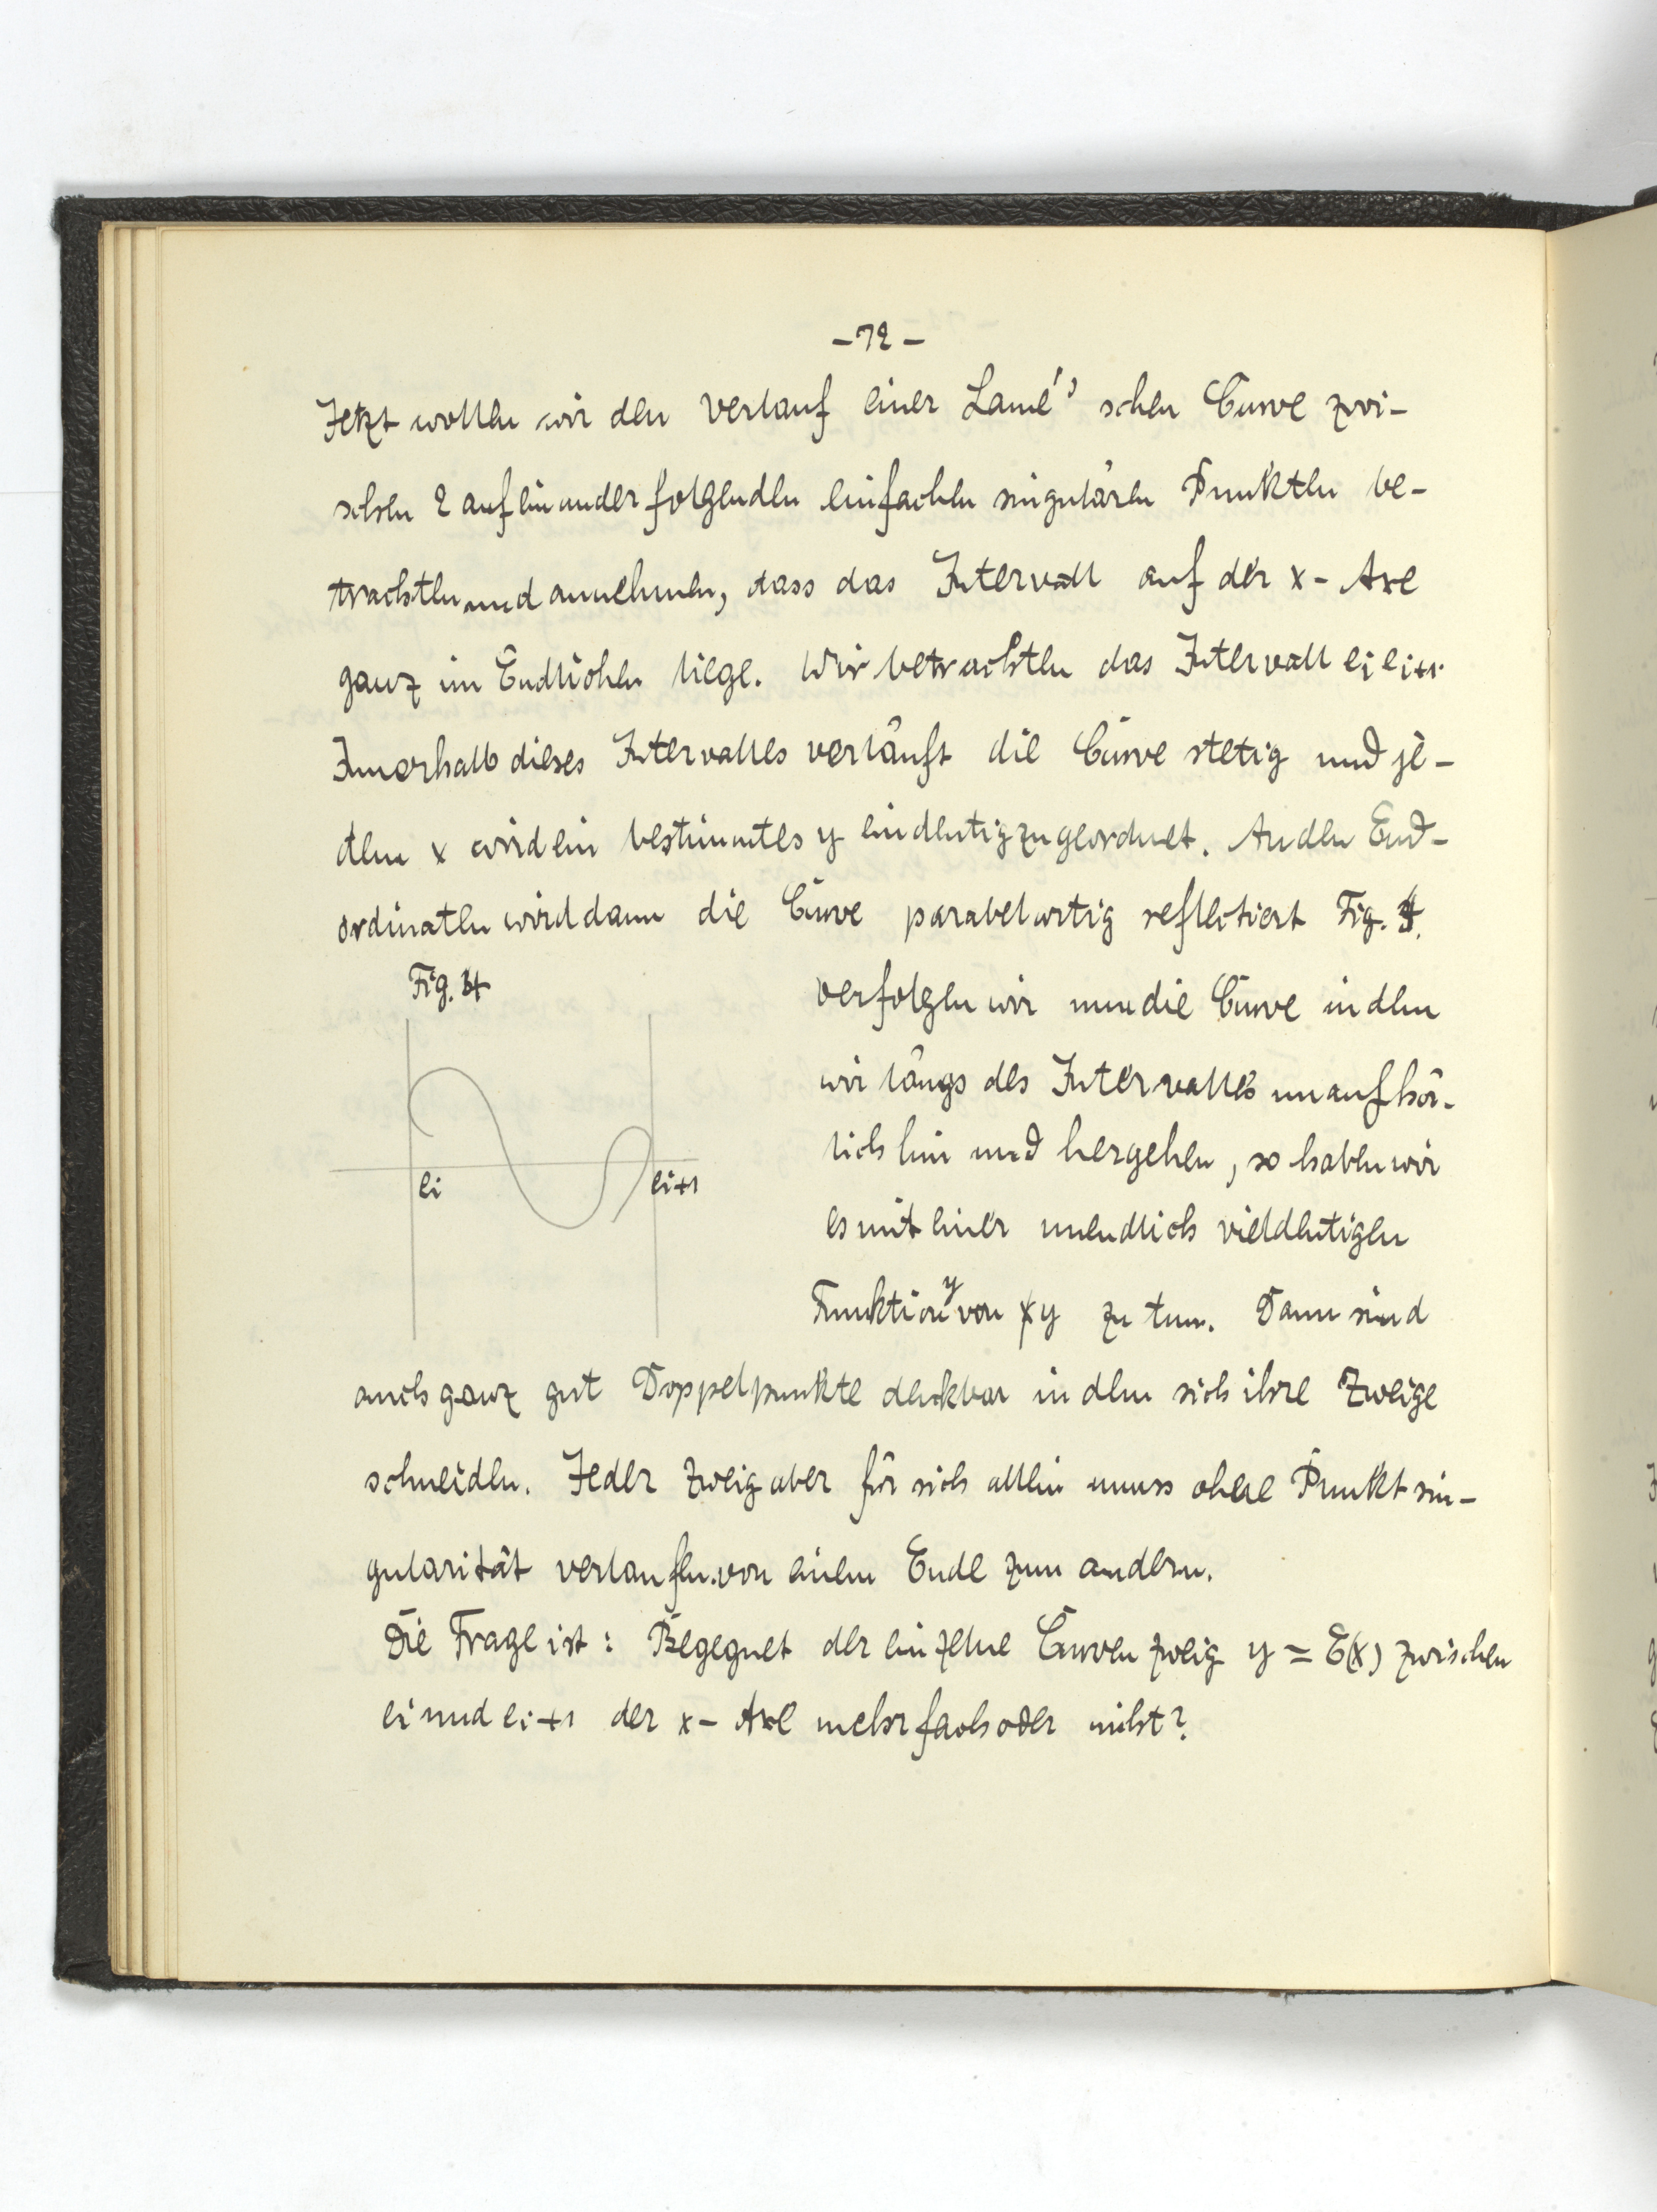 -72-
Jetzt wollen wir den Verlauf einer Lamé'schen Curve zwi-
schen 2 aufeinander folgenden einfachen singulären Punkten be-
trachten und annehmen, dass das Intervall auf der x-Axe
ganz im Endlichen liege. Wir betrachten das Intervall ei ei+1.
Innerhalb dieses Intervalles verläuft die Curve stetig und je-
dem x wird ein bestimmtes y eindeutig zugeordnet. An den End-
ordinaten wird dann die Curve parabelartig reflectiert Fig. 4.
Fig. 4
verfolgen wir nun die Curve indem
wir längs des Intervalles unaufhör-
lich hin und hergehen, so haben wir
es mit einer unendlich vieldeutigen
Funktion y von x y zu tun. Dann sind
ei
ei+1
auch ganz gut Doppelpunkte denkbar in dem sich ihre Zweige
schneiden. Jeder Zweig aber für sich allein muss ohne Punktsin-
gularität verlaufen von einem Ende zum andern.
Die Frage ist: Begegnet der einzelne Curvenzweig y = E(x) zwischen
ei und ei+1 der x-Axe mehrfach oder nicht?